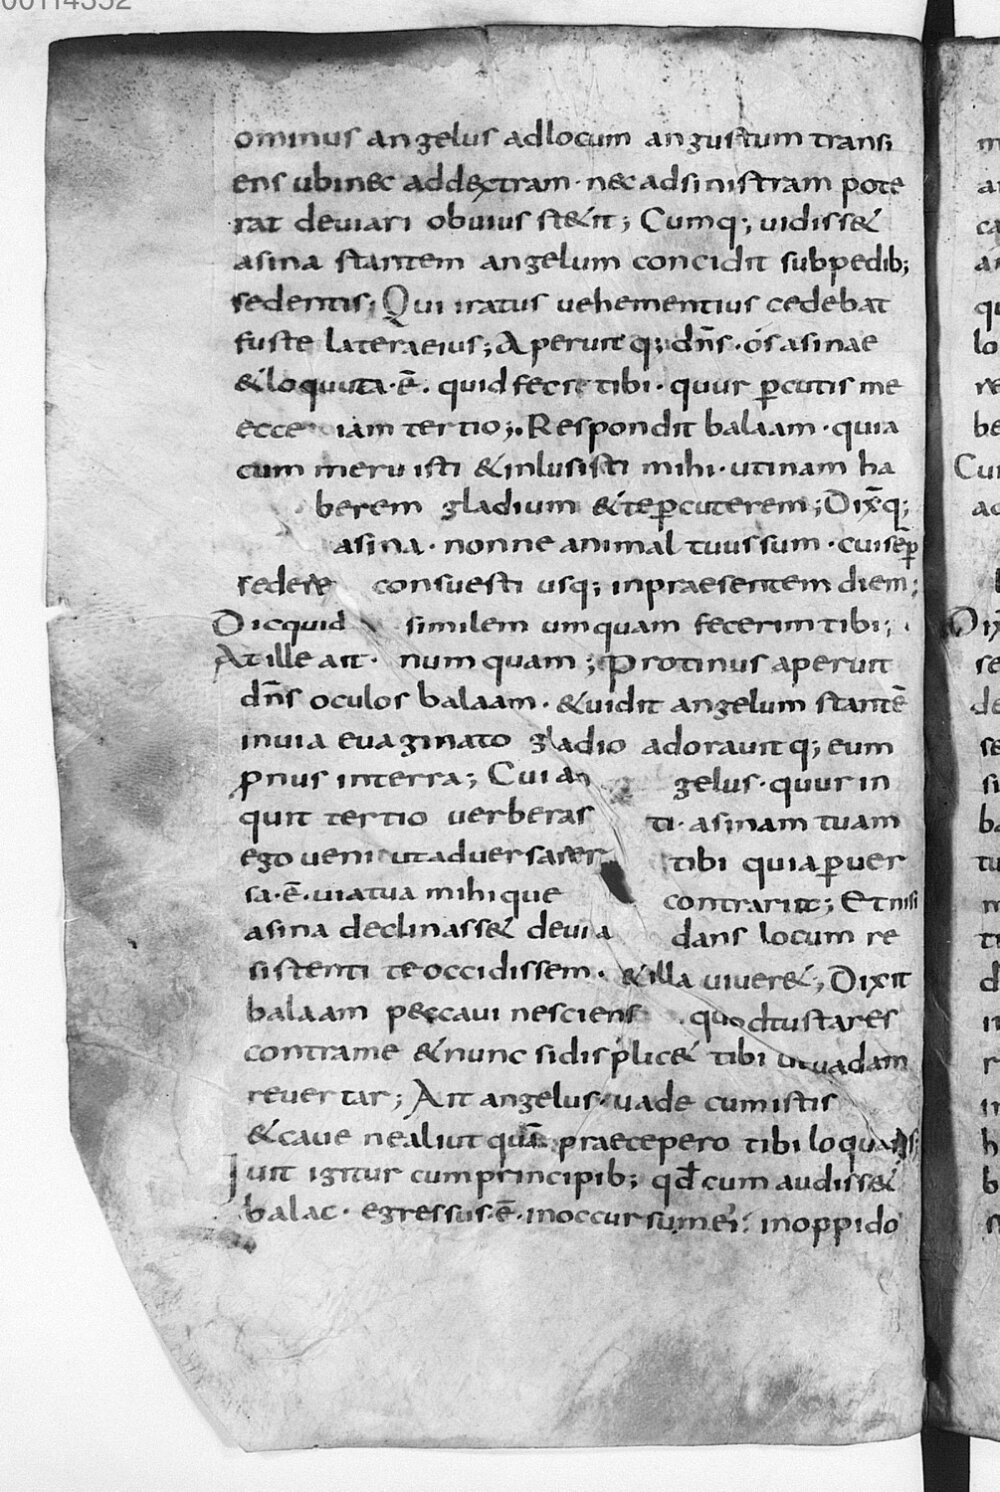 00114352
ominus angelus adlocum angustum transi
ens ubinec addextram · nec adsinistram pote
rat deviari obvius st&it ; Cumq; vidiss&
asina stantem angelum concidit subpedib;
sedentis ; Qui iratus vehementius cedebat
fuste lateraeius ; Aperuit q; dn̄s · ós asinae
&loquuta · ē · quid feci tibi · quur ꝑcutis me
ecce iam tertio ; Respondit balaam · quia
cum meruisti &inlusisti mihi · utinam ha
berem gladium &teꝑcuterem ; Dix̄q;
asina · nonne animal tuus sum · cui sēꝑ
sedere consuesti usq; inpraesentem diem ;
Dicquid similem umquam fecerim tibi ;
At ille ait · numquam ; Protinus aperuit
dn̄s oculos balaam · &vidit angelum stantē
invia evaginato gladio adoravit q; eum
ꝓnus interra ; Cui an gelus · quur in
quit tertio verberas ti · asinam tuam
ego veni utadversarer tibi quia ꝑver
sa · ē · via tua mihi que contrariit ; Et nisi
asina declinass& devia dans locum re
sistenti te occidissem · &illa viver& ; Dixit
balaam peccavi nesciens quod tu stares
contrame &nunc sidisplic& tibi utvadam
revertar ; Ait angelus · vade cumistis
&cave nealiut quā praecepero tibi loquaris ;
Ivit igitur cumprincipib; qđ cum audiss&
balac · egressus · ē · inoccursum ei · inoppido